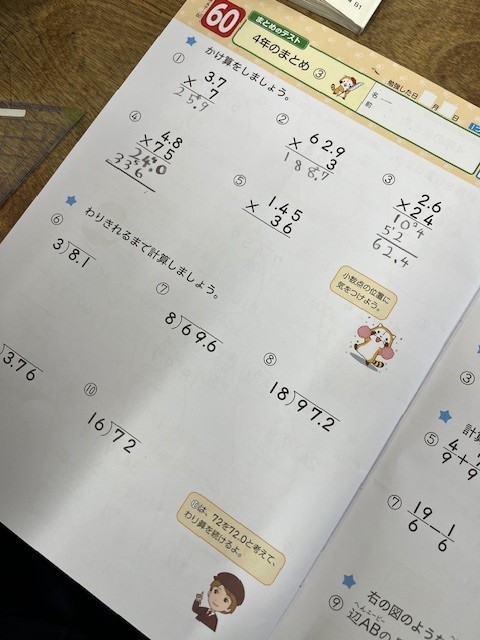 60
まとめのテスト
4年のまとめ ③
勉強した日
月 日
名前
かけ算をしましょう。
①
3.7
× 7
25.9
②
62.9
× 3
188.7
③
2.6
× 24
104
52
62.4
④
4.8
× 75
240
336
⑤
1.45
× 36
小数点の位置に
気をつけよう。
わりきれるまで計算しましょう。
⑥
3)8.1
⑦
8)69.6
⑧
18)97.2
)3.76
⑩
16)72
⑩は、72を72.0と考えて、
わり算を続けるよ。
③
計
⑤
4/9 + 7/9
⑦
19/6 - 1/6
右の図のような
⑨ 辺ABの
へんエービー